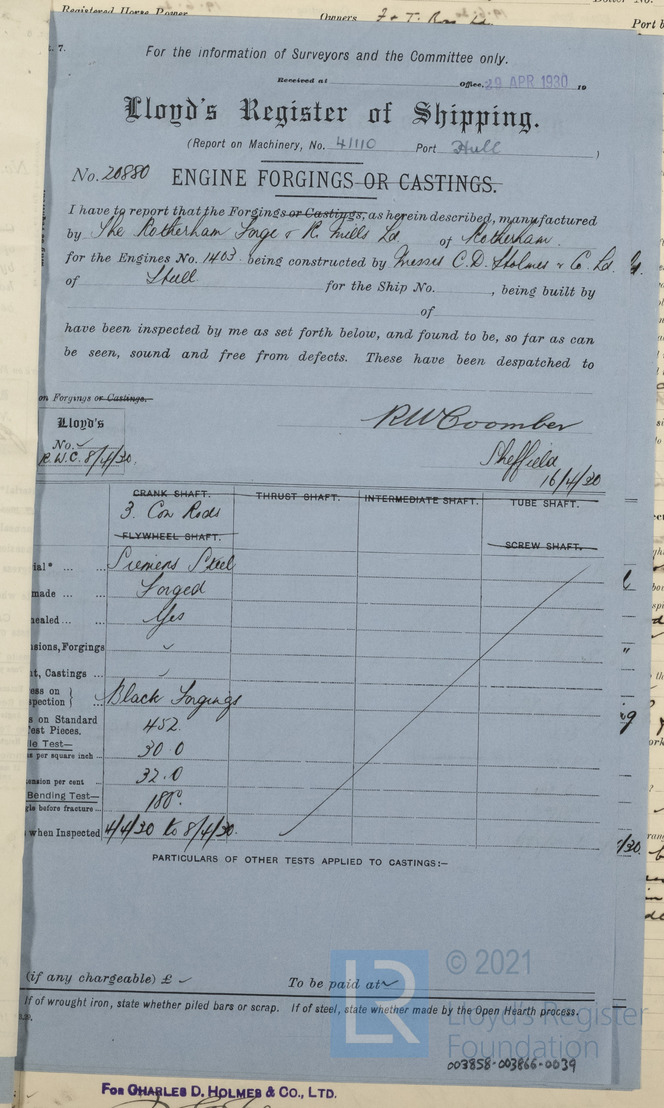 Registered Horse Power Owners F & T. Ross Ld. Port b
t. 7.
For the information of Surveyors and the Committee only.
Received at Office, 29 APR 1930 19
Lloyd's Register of Shipping.
(Report on Machinery, No. 41110 Port Hull )
No. 20880 ENGINE FORGINGS OR CASTINGS.
I have to report that the Forgings or Castings, as herein described, manufactured
by The Rotherham Forge & R. Mills Ld of Rotherham.
for the Engines No. 1403 being constructed by Messrs C.D. Holmes & Co. Ld.
of Hull for the Ship No. , being built by
of
have been inspected by me as set forth below, and found to be, so far as can
be seen, sound and free from defects. These have been despatched to
on Forgings or Castings.
Lloyd's
No. ✓
R.W.C. 8/4/30.
RW Coomber
Sheffield
16/4/30
CRANK SHAFT. THRUST SHAFT. INTERMEDIATE SHAFT. TUBE SHAFT.
3. Con Rods
FLYWHEEL SHAFT. SCREW SHAFT.
ial* ... ... Siemens Steel
made ... ... Forged
nealed ... ... Yes
nsions, Forgings ✓
nt, Castings ... ✓
ess on } spection } Black Forgings
s on Standard
Test Pieces. 452
le Test—
s per square inch ... 30.0
ension per cent ... 32.0
Bending Test—
gle before fracture ... 180°.
when Inspected 4/4/30 to 8/4/30.
PARTICULARS OF OTHER TESTS APPLIED TO CASTINGS:—
(if any chargeable) £ ✓ To be paid at ✓
If of wrought iron, state whether piled bars or scrap. If of steel, state whether made by the Open Hearth process.
LR
© 2021
Lloyd's Register
Foundation
003858-003866-0039
FOR CHARLES D. HOLMES & CO., LTD.